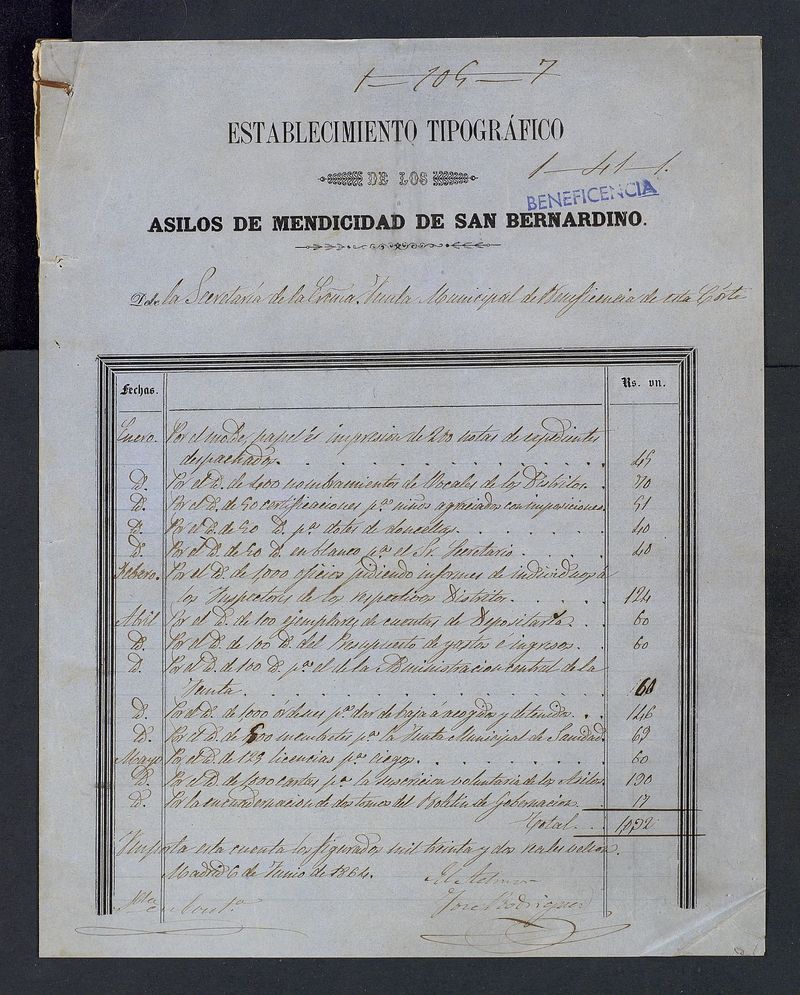 1—105—7
ESTABLECIMIENTO TIPOGRÁFICO
DE LOS
1—41—1.
BENEFICENCIA
ASILOS DE MENDICIDAD DE SAN BERNARDINO.
Debe la Secretaría de la Junta Municipal de Beneficencia de esta Córte
Fechas. Rs. vn.
Enero. Por el papel é impresion de 200 notas de espedientes
despachados. 45
D. Por el D. de 400 nombramientos de Vocales de los Distritos. 70
D. Por el D. de 50 certificaciones pa. niños agraciados con imposiciones. 51
D. Por el D. de 50 D. pa. dotes de doncellas. 40
D. Por el D. de 50 D. en blanco pa. el Sr. Secretario. 40
Febero. Por el D. de 1,000 oficios pidiendo informes de individuos á
los Inspectores de los respectivos Distritos. 124
Abril Por el D. de 100 ejemplares de cuentas de Depositaría. 60
D. Por el D. de 100 D. del Presupuesto de gastos é ingresos. 60
D. Por el D. de 100 D. pa. el de la Administracion central de la
Junta. 160
D. Por el D. de 1,000 órdenes pa. dar de baja á acogidos y detenidos. 146
D. Por el D. de 500 membetes pa. la Junta Municipal de Sanidad. 69
Mayo Por el D. de 125 licencias pa. ciegos. 60
D. Por el D. de 1,000 cartas pa. la suscricion voluntaria de los Asilos. 190
D. Por la encuadernacion de dos tomos del Boletin de Gobernacion. 17
Total. 1,032
Importa esta cuenta los figurados mil treinta y dos reales vellon.
Madrid 6 de Junio de 1864.
El
José Rodriguez